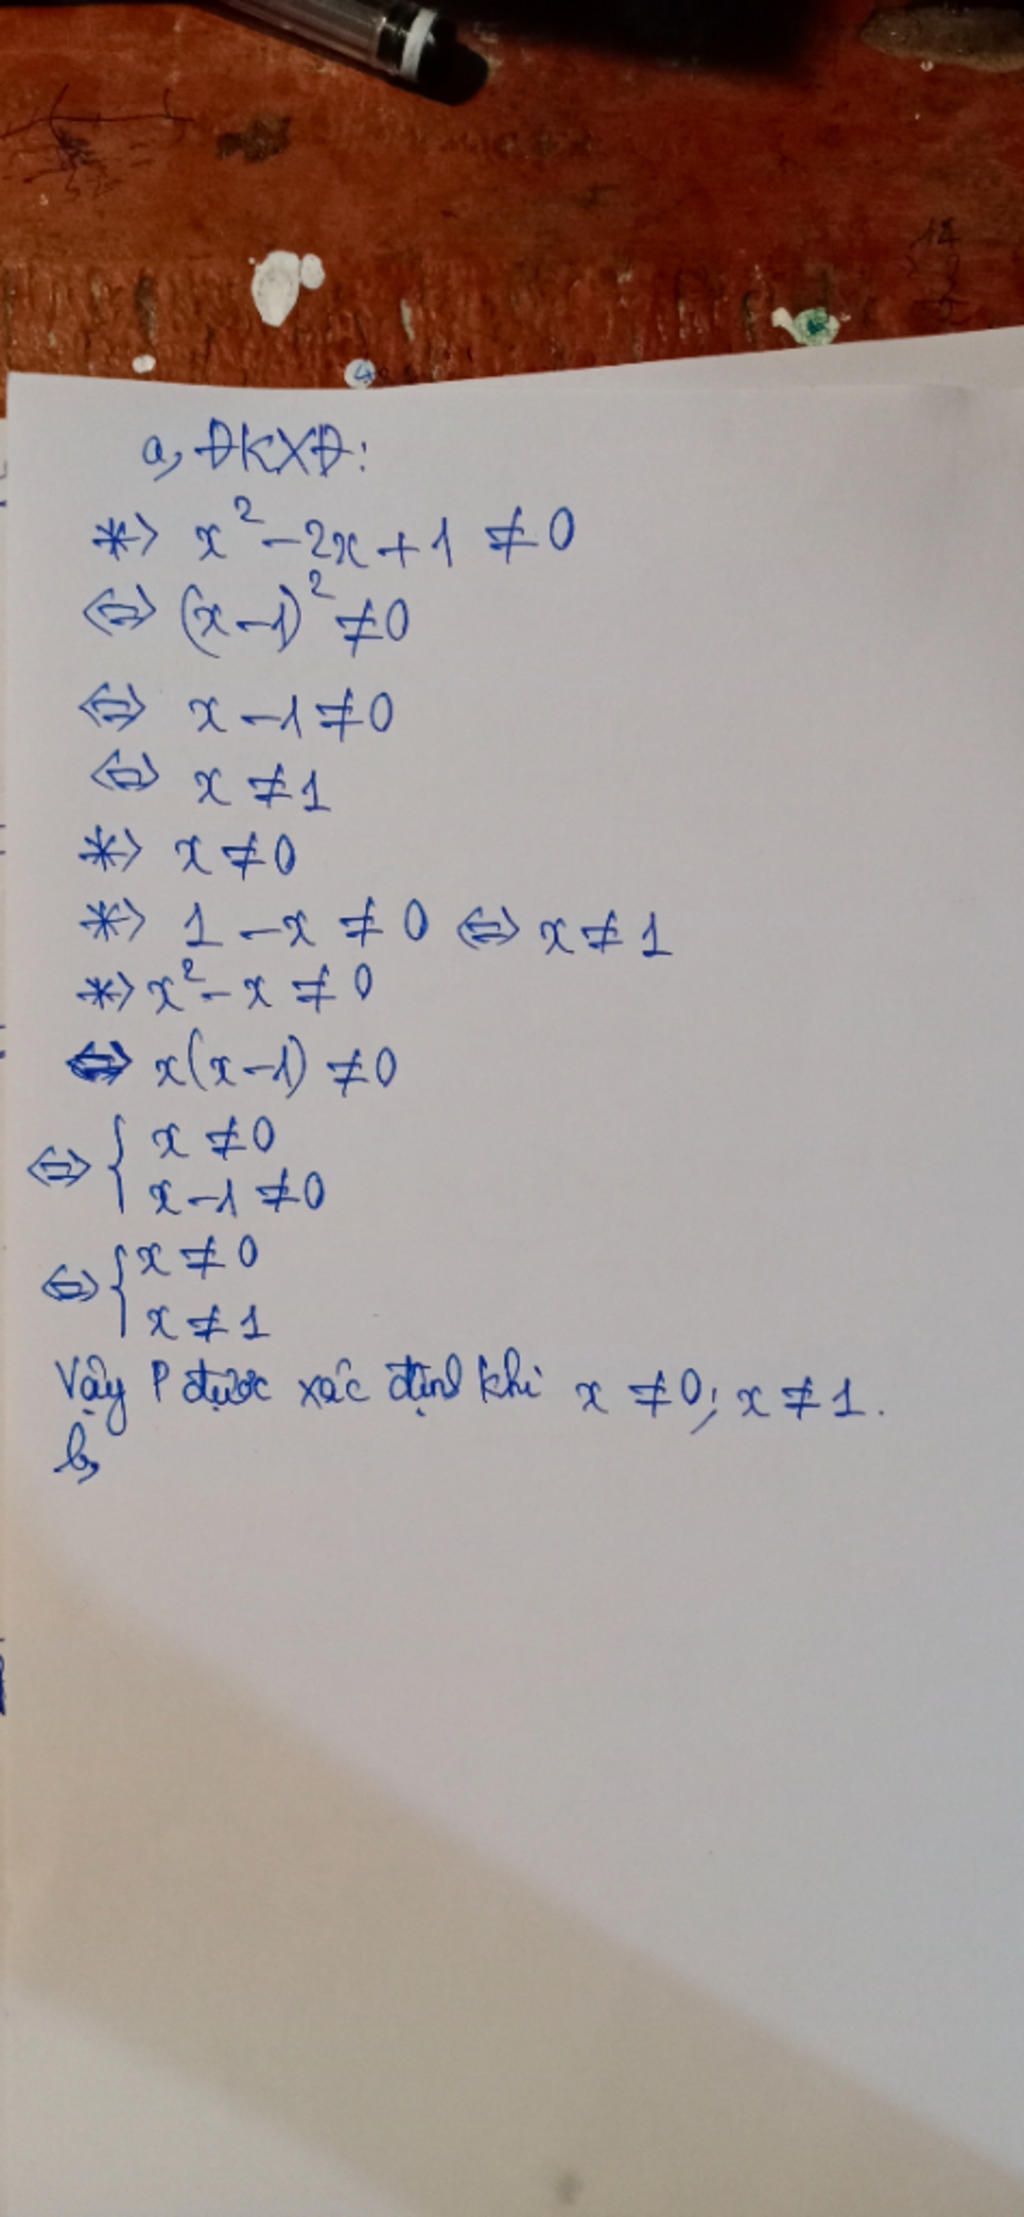 a, ĐKXĐ:
*> x² - 2x + 1 ≠ 0
<=> (x - 1)² ≠ 0
<=> x - 1 ≠ 0
<=> x ≠ 1
*> x ≠ 0
*> 1 - x ≠ 0 <=> x ≠ 1
*> x² - x ≠ 0
<=> x(x - 1) ≠ 0
<=> { x ≠ 0
x - 1 ≠ 0
<=> { x ≠ 0
x ≠ 1
Vậy P được xác định khi x ≠ 0; x ≠ 1.
b,